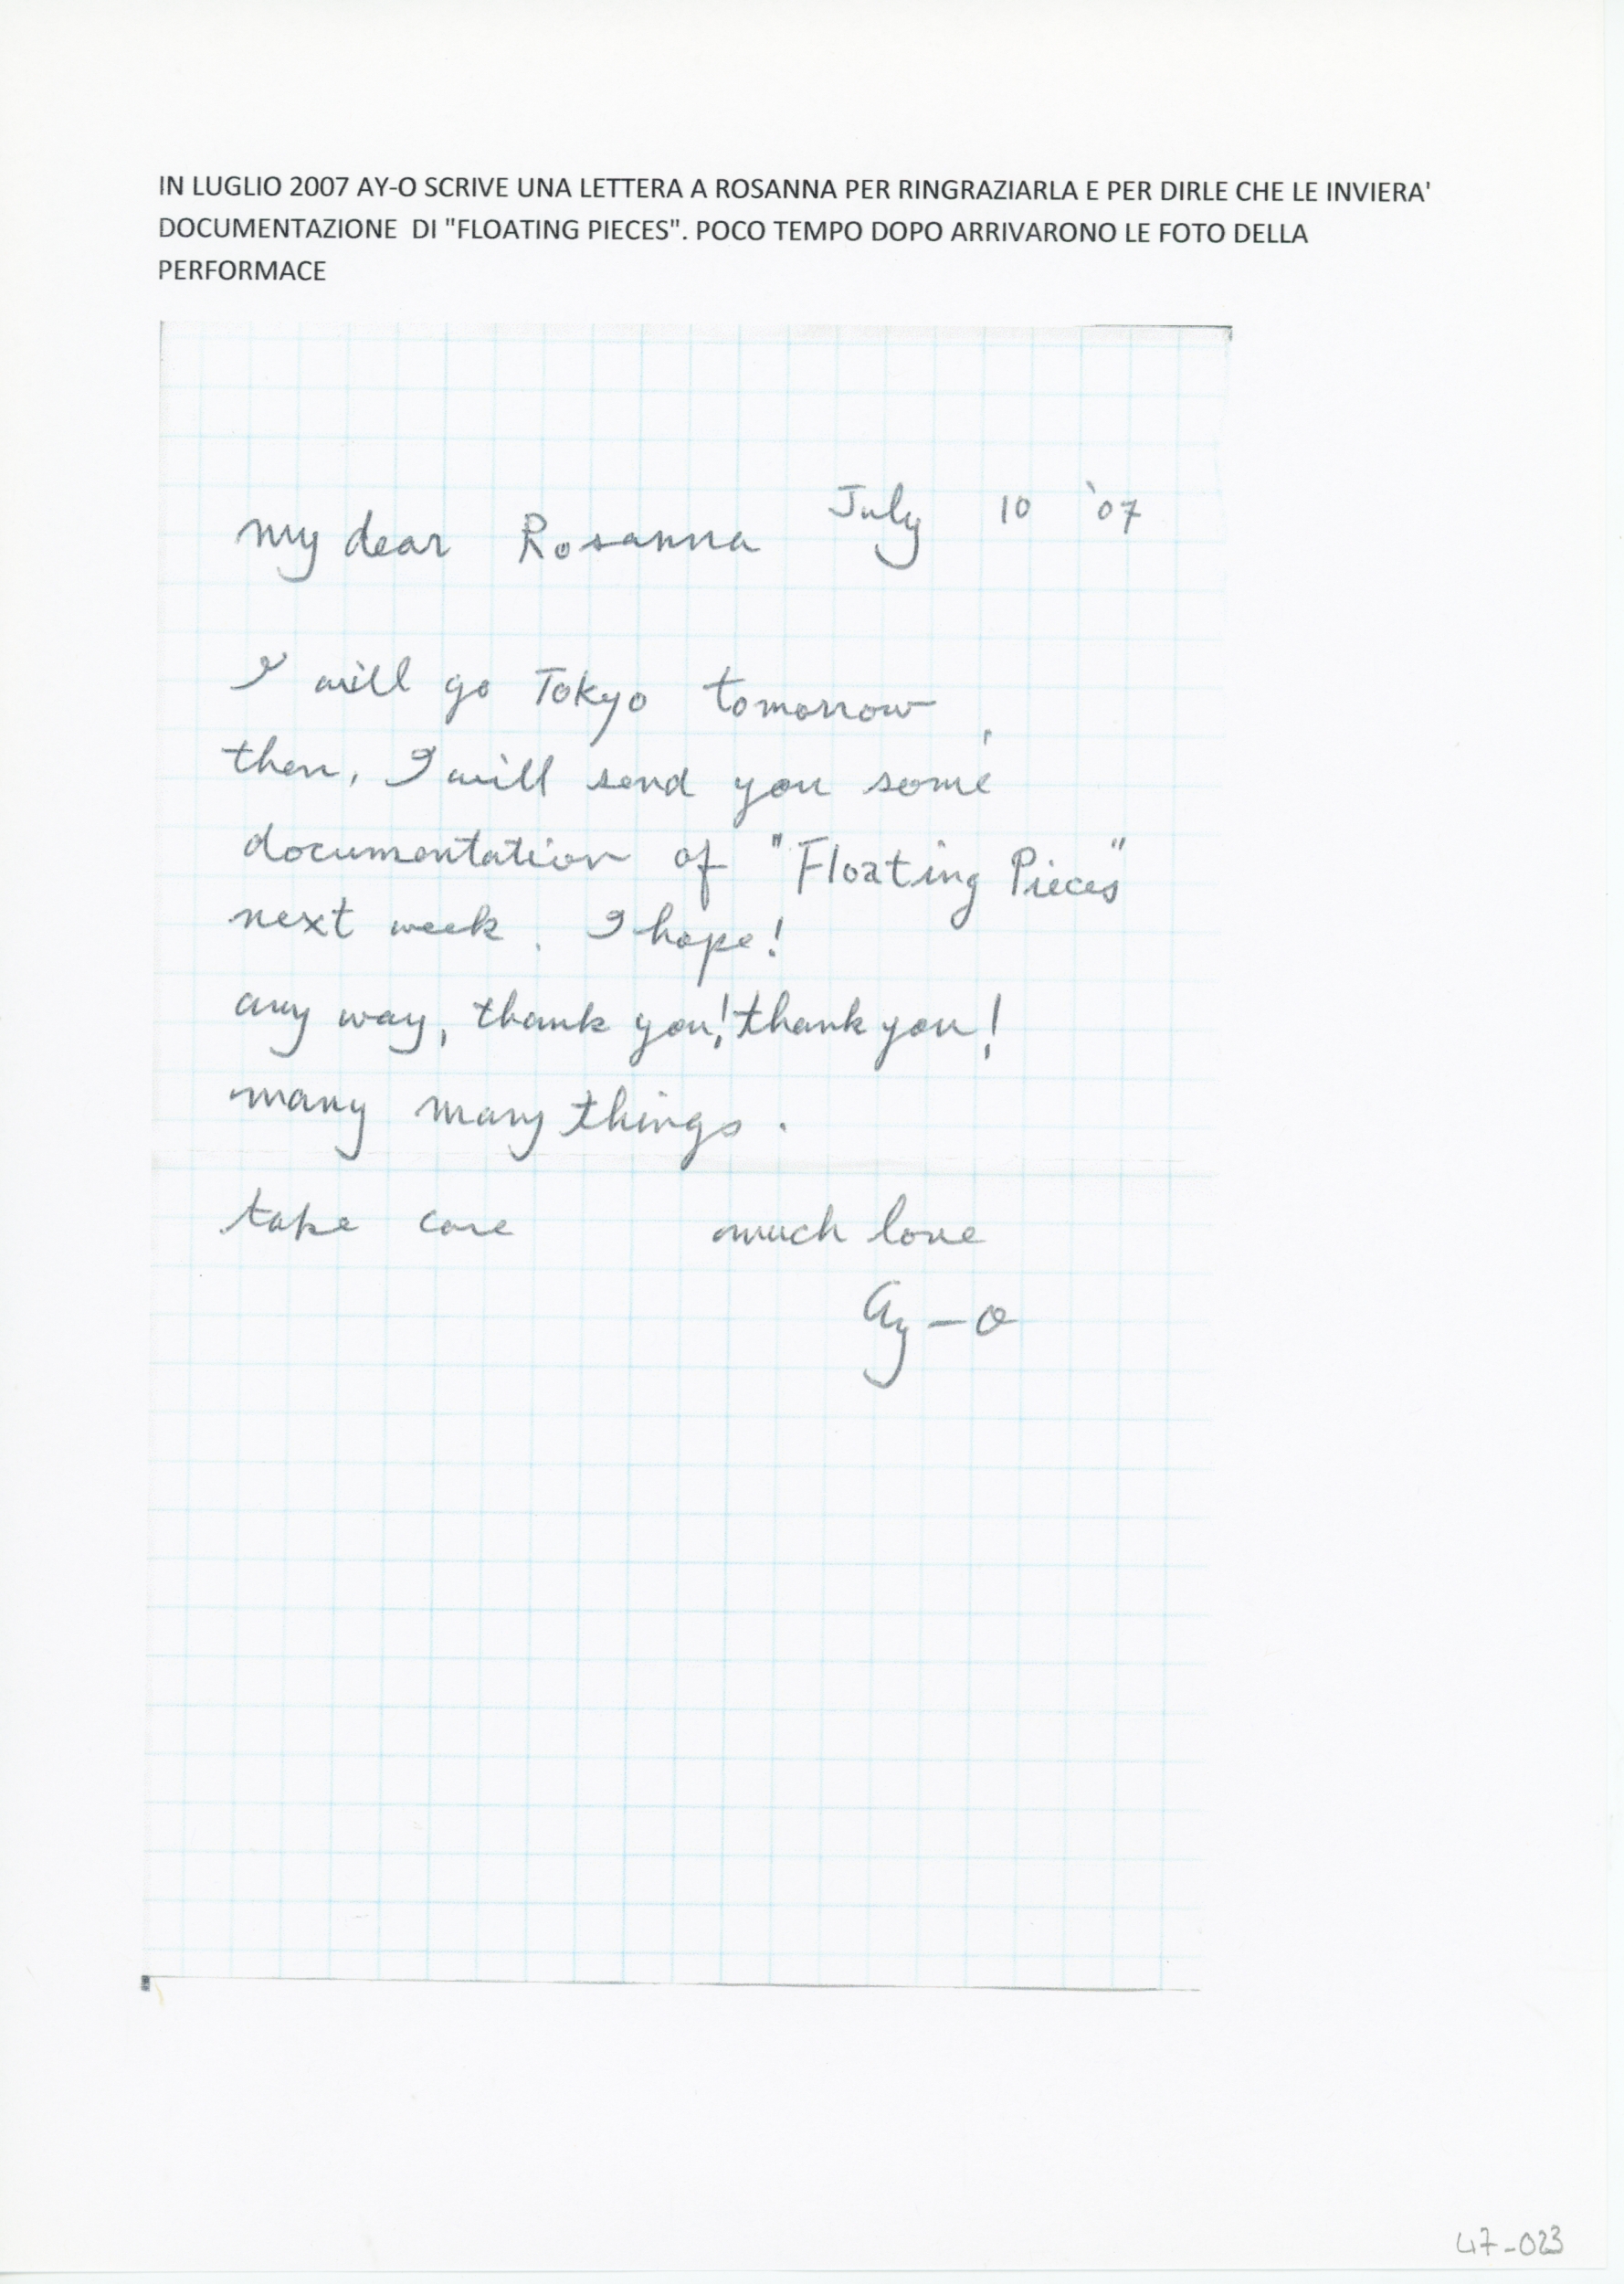 IN LUGLIO 2007 AY-O SCRIVE UNA LETTERA A ROSANNA PER RINGRAZIARLA E PER DIRLE CHE LE INVIERA'
DOCUMENTAZIONE DI "FLOATING PIECES". POCO TEMPO DOPO ARRIVARONO LE FOTO DELLA
PERFORMACE
July 10 '07
My dear Rosanna
I will go Tokyo tomorrow,
then, I will send you some
documentation of "Floating Pieces"
next week. I hope!
any way, thank you! thank you!
many many things.
take care much love
Ay-o
47-023